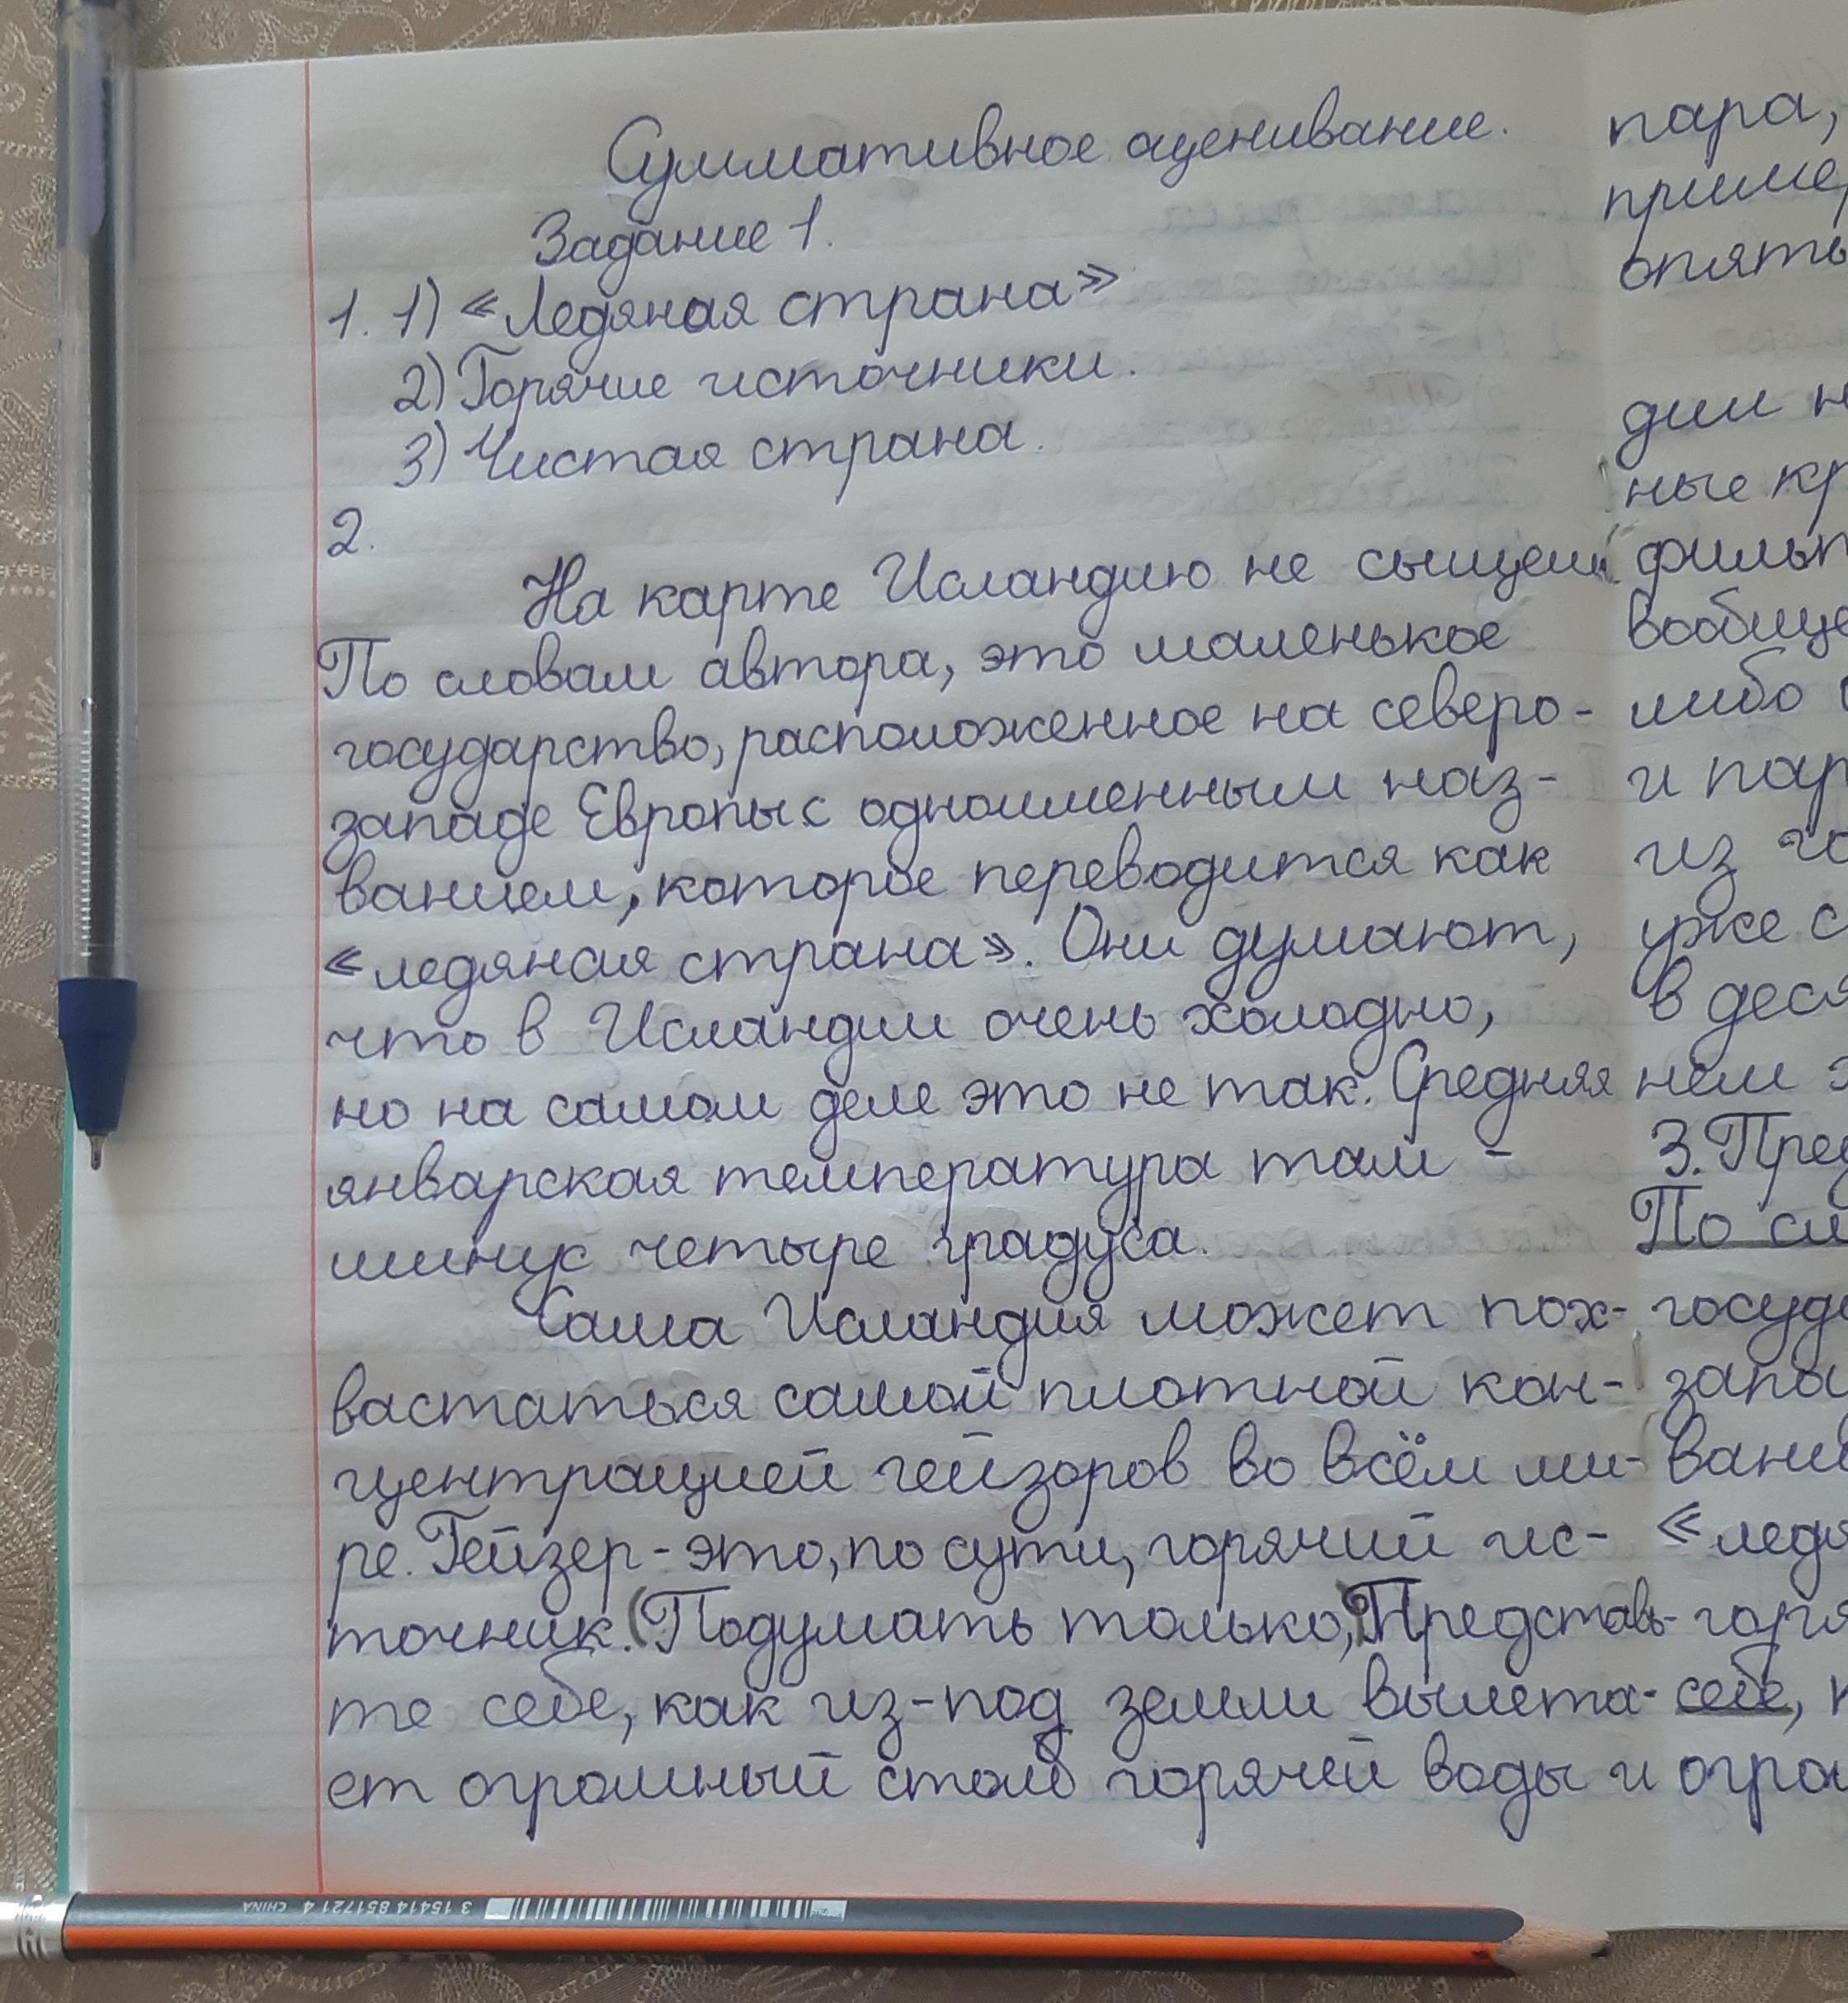 Суммативное оценивание.
Задание 1.
1. 1) «Ледяная страна»
2) Горячие источники.
3) Чистая страна.
2.
На карте Исландию не сыщешь.
По словам автора, это маленькое
государство, расположенное на северо-
западе Европы с одноименным наз-
ванием, которое переводится как
«ледяная страна». Они думают,
что в Исландии очень холодно,
но на самом деле это не так. Средняя
январская температура там -
минус четыре градуса.
Сама Исландия может пох-
вастаться самой плотной кон-
центрацией гейзоров во всём ми-
ре. Гейзер - это, по сути, горячий ис-
точник. (Подумать только, Представь-
те себе, как из-под земли вылета-
ет огромный столб горячей воды и
пара,
приме
опять
дии н
ные кр
фильт
вообще
либо
и пар
из го
уже с
в деся
нем э
3. Пред
По сл
госуда
запа
вани
«ледя
горя
себе,
огро
3 15414 851721 4 CHINA